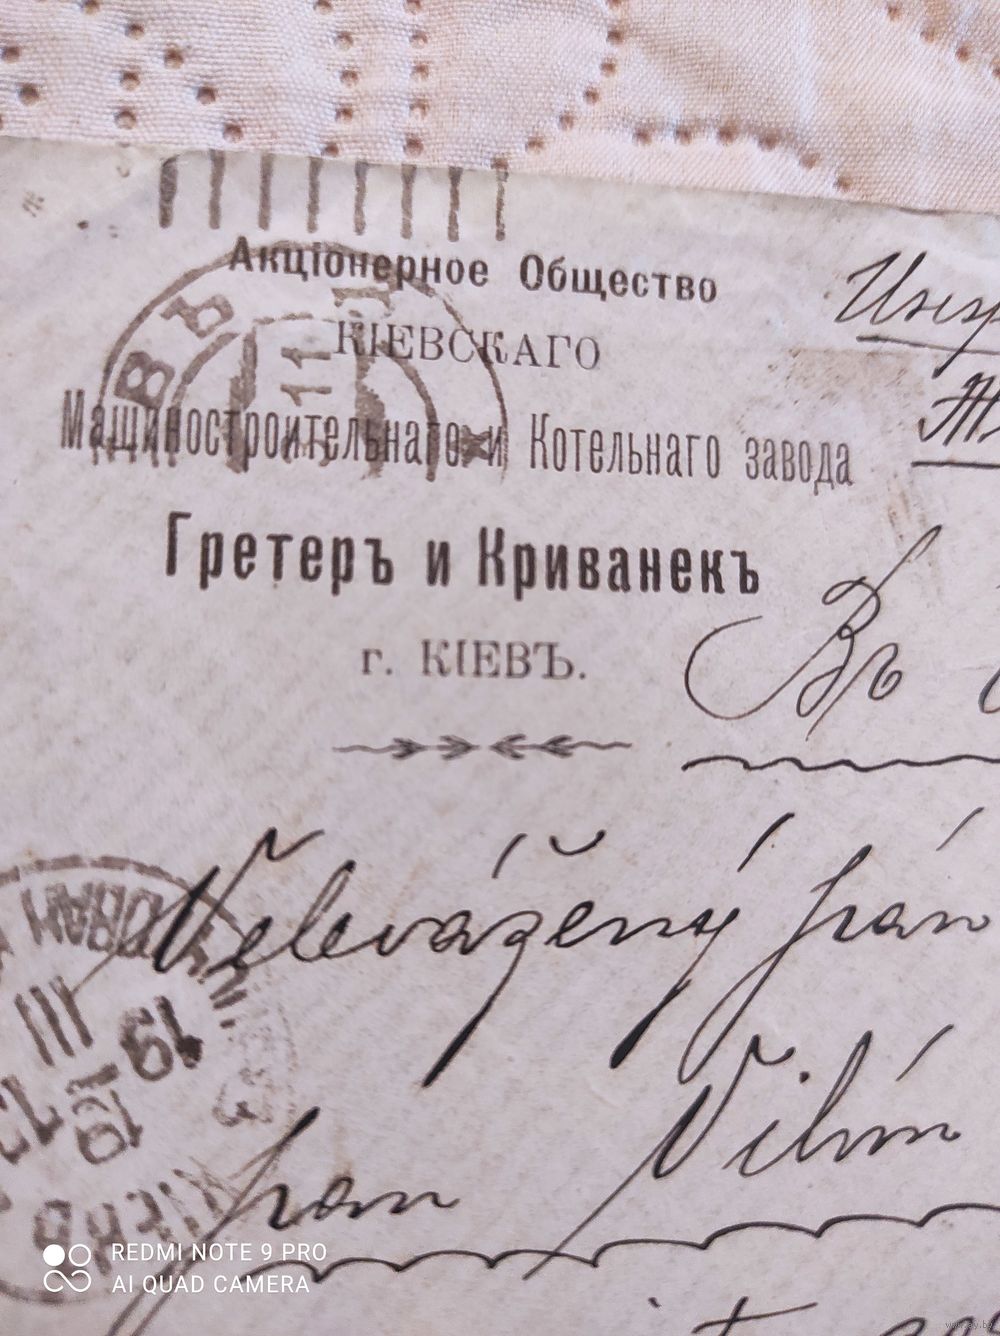 Акціонерное Общество
КІЕВСКАГО
Машиностроительнаго и Котельнаго завода
Гретеръ и Криванекъ
г. КІЕВЪ.
Въ
Velevážený pán
pan Vilém
19
III
REDMI NOTE 9 PRO
AI QUAD CAMERA